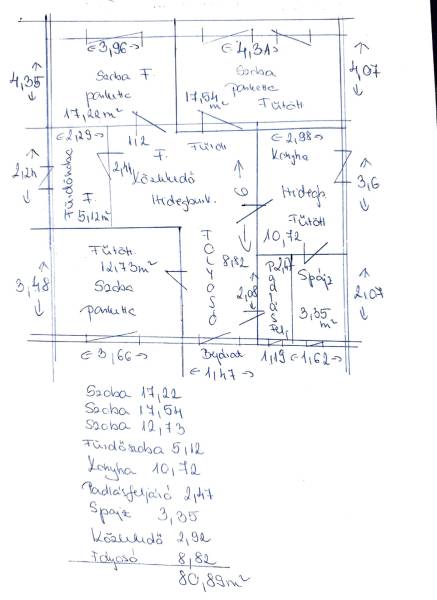 ← 3,96 →
← 4,31 →
4,35
4,07
Szoba F.
parketta
17,22 m²
Szoba
parketta
Fűtött
17,54 m²
← 2,29 →
1,2
Fűtött
← 2,98 →
Fürdőszoba
F.
5,12 m²
2,44
F.
Közlekedő
Hidegburk.
6
Konyha
Hidegb.
Fűtött
10,72
3,6
Fűtött
12,73 m²
Szoba
parketta
3,48
FOLYOSÓ
8,82
2,08
Padlás Felj.
2,47
Spájz
3,35 m²
2,07
← 3,66 →
Bejárat
← 1,47 →
1,19
← 1,62 →
Szoba 17,22
Szoba 17,54
Szoba 12,73
Fürdőszoba 5,12
Konyha 10,72
Padlásfeljáró 2,47
Spájz 3,35
Közlekedő 2,92
Folyosó 8,82
80,89 m²